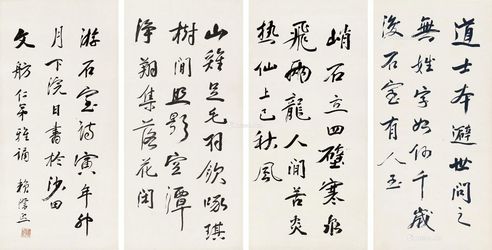 道士本避世問之
無姓字如何千歲
後石室有人至
峭石立四壁寒泉
飛兩龍人間苦炎
熱仙山已秋風
山雞足毛羽飲啄琪
樹間照影空潭
淨翔集落花閒
游石室詩寅年卯
月下浣日書於沙田
文舫仁弟雅誦 賴際熙